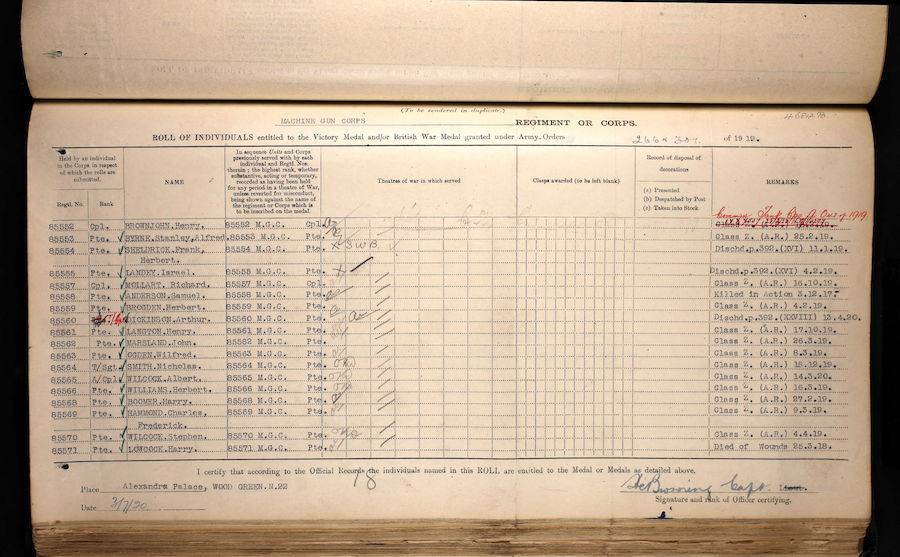 (To be rendered in duplicate.)
MACHINE GUN CORPS REGIMENT OR CORPS.
ROLL OF INDIVIDUALS entitled to the Victory Medal and/or British War Medal granted under Army Orders of 1919.
Held by an individual in the Corps in respect of which the rolls are submitted.
Regtl. No. Rank
NAME
In sequence Units and Corps previously served with by each individual and Regtl. Nos. therein; the highest rank, whether substantive, acting or temporary, recorded as having been held for any period in a theatre of War, unless reverted for misconduct, being shown against the name of the regiment or Corps to be inscribed on the medal.
Theatres of war in which served
Clasps awarded (to be left blank)
Record of disposal of decorations
(a) Presented
(b) Despatched by Post
(c) Taken into Stock
REMARKS
85552 Cpl. BROWNJOHN.Henry. 85552 M.G.C. Cpl.
85553 Pte. BYRNE.Stanley,Alfred. 85553 M.G.C. Pte. Class Z. (A.R.) 25.2.19.
85554 Pte. SHELDRICK.Frank, 85554 M.G.C. Pte. X S.W.B. Dischd.p.392.(XVI) 11.1.19.
Herbert.
85555 Pte. LANDEY.Israel. 85555 M.G.C. Pte. X Dischd.p.392.(XVI) 4.2.19.
85557 Cpl. MOLLART. Richard. 85557 M.G.C. Cpl. Class Z. (A.R.) 16.10.19.
85558 Pte. ANDERSON.Samuel. 85558 M.G.C. Pte. Killed in Action 3.12.17.
85559 Pte. BROGDEN.Herbert. 85559 M.G.C. Pte. Class Z. (A.R.) 4.2.19.
85560 DICKINSON.Arthur. 85560 M.G.C. Pte. Dischd.p.392.(XXVIII) 13.4.20.
85561 Pte. LANGTON.Henry. 85561 M.G.C. Pte. Class Z. (A.R.) 17.10.19.
85562 Pte. MARSLAND.John. 85562 M.G.C. Pte. Class Z. (A.R.) 26.3.19.
85563 Pte. OGDEN.Wilfred. 85563 M.G.C. Pte. Class Z. (A.R.) 8.3.19.
85564 T/Sgt. SMITH.Nicholas. 85564 M.G.C. Pte. Class Z. (A.R.) 15.12.19.
85565 A/Cpl. WILCOCK.Albert. 85565 M.G.C. Pte. Class Z. (A.R.) 14.3.20.
85566 Pte. WILLIAMS.Herbert. 85566 M.G.C. Pte. Class Z. (A.R.) 16.3.19.
85568 Pte. BOOMER.Harry. 85568 M.G.C. Pte. Class Z. (A.R.) 27.2.19.
85569 Pte. HAMMOND.Charles, 85569 M.G.C. Pte. Class Z. (A.R.) 9.3.19.
Frederick.
85570 Pte. WILCOCK.Stephen. 85570 M.G.C. Pte. Class Z. (A.R.) 4.4.19.
85571 Pte. LOWCOCK.Harry. 85571 M.G.C. Pte. Died of Wounds 25.3.18.
I certify that according to the Official Records the individuals named in this ROLL are entitled to the Medal or Medals as detailed above.
18
Place Alexandra Palace, WOOD GREEN.N.22
Browning Capt.
Signature and rank of Officer certifying.
Date 3/7/20